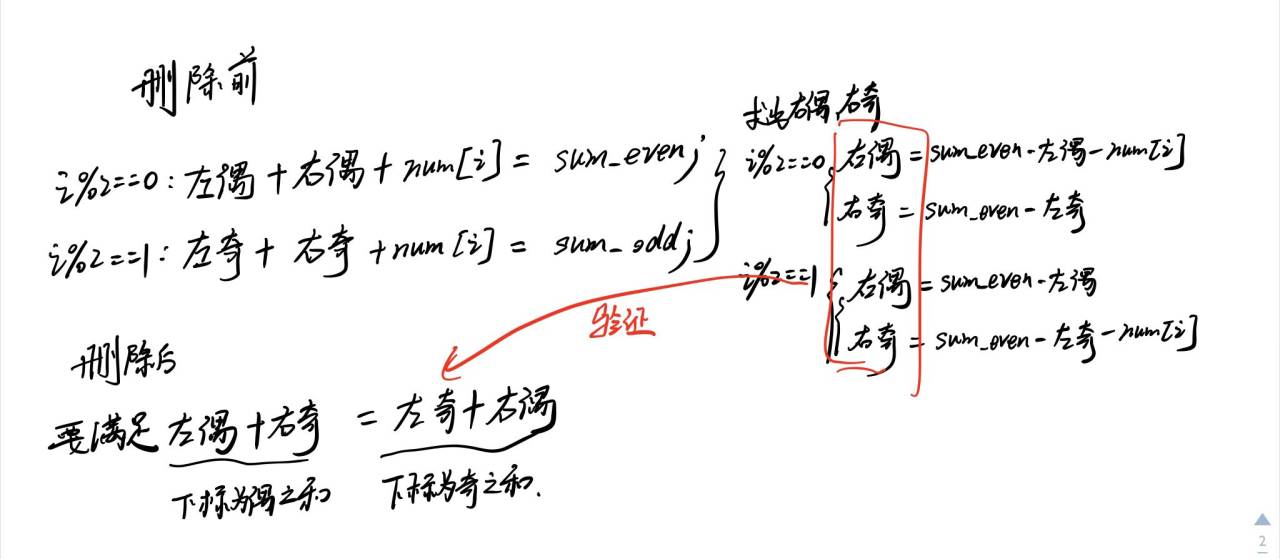 删除前
i%2==0: 左偶+右偶+num[i] = sum_even;
i%2==1: 左奇+右奇+num[i] = sum_odd;
求出右偶,右奇
i%2==0 右偶=sum_even-左偶-num[i]
右奇=sum_even-左奇
i%2==1 右偶=sum_even-左偶
右奇=sum_even-左奇-num[i]
验证
删除后
要满足 左偶+右奇 = 左奇+右偶
下标为偶之和 下标为奇之和.
2